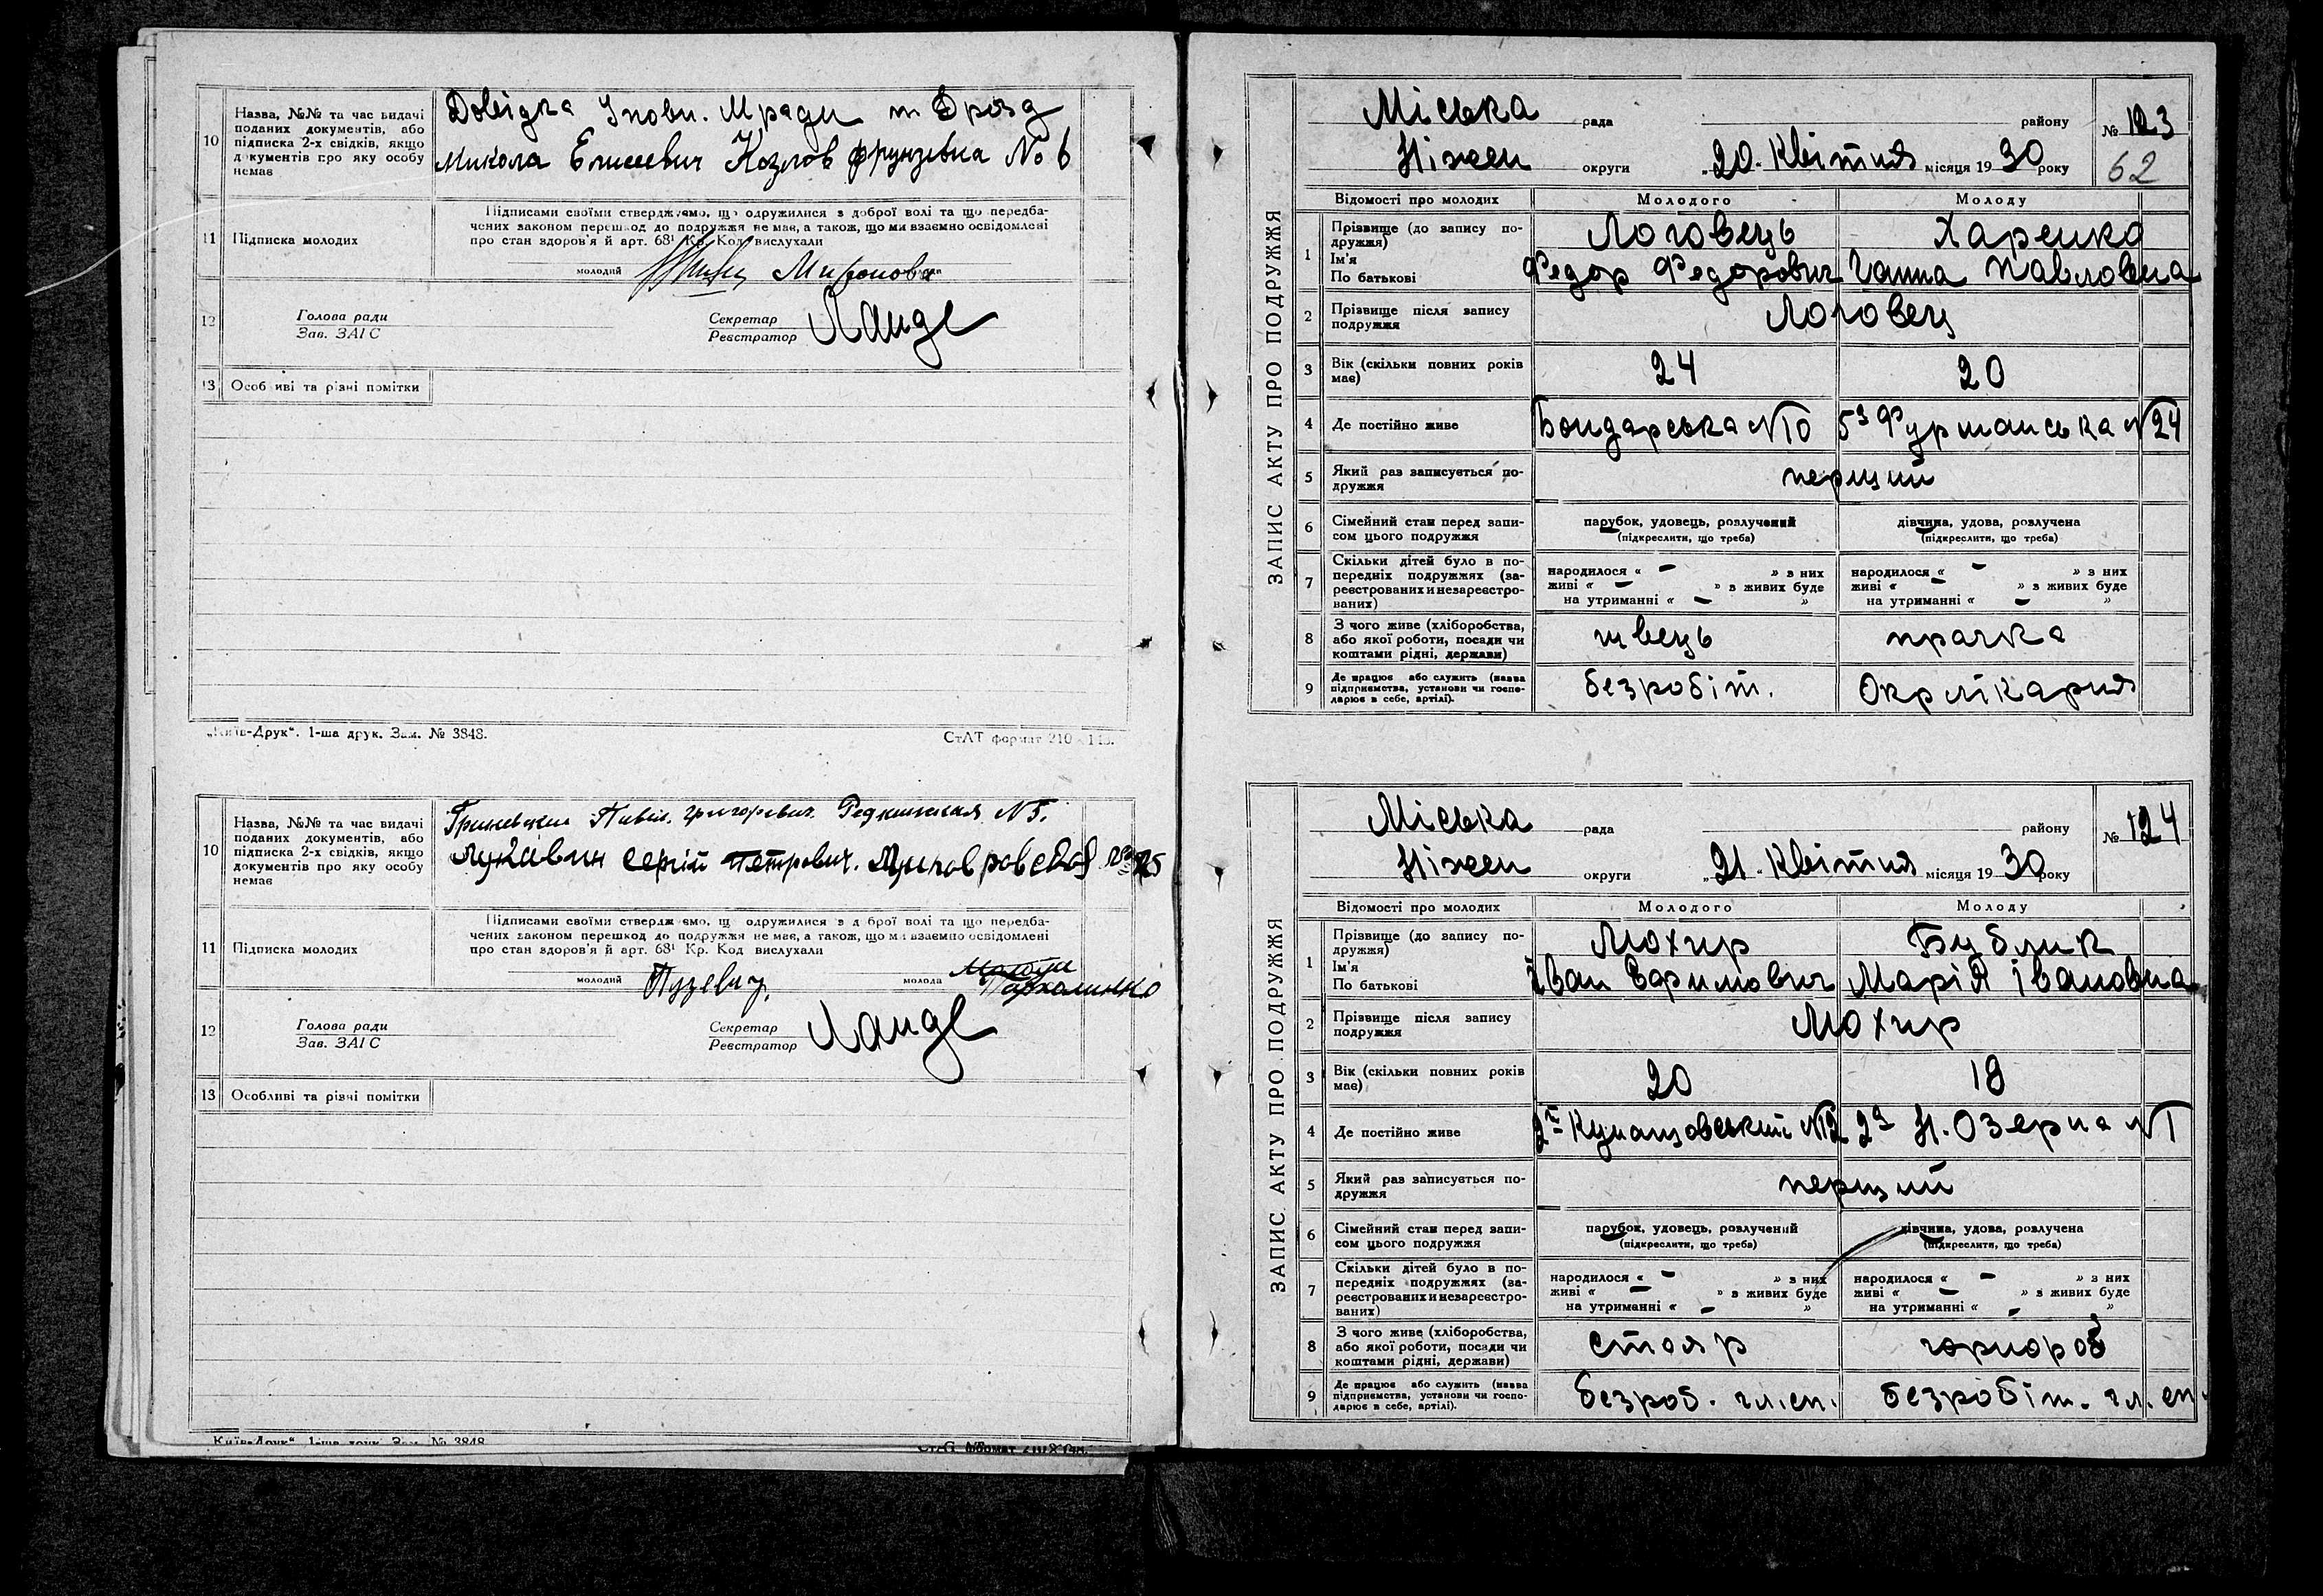 10
Назва, №№ та час видачі
поданих документів, або
підписка 2-х свідків, якщо
документів про яку особу
немає
Довідка Іновн. Мради т Дрозд
Микола Елисеевич Козлов фрунзевка № 6
11 Підписка молодих
Підписами своїми стверджуємо, що одружилися з доброї волі та що передба-
чених законом перешкод до подружжя не має, а також, що ми взаємно освідомлені
про стан здоров'я й арт. 68¹ Кр. Код вислухали
молодий Миронова
12
Голова ради
Зав. ЗАГС
Секретар
Реєстратор
Ланде
13 Особливі та різні помітки
„Київ-Друк“. 1-ша друк. Зам. № 3848.
СтАТ формат 210
10
Назва, №№ та час видачі
поданих документів, або
підписка 2-х свідків, якщо
документів про яку особу
немає
Григорович. Редкинская № 5.
Сергій Петрович.
11 Підписка молодих
Підписами своїми стверджуємо, що одружилися з доброї волі та що передба-
чених законом перешкод до подружжя не має, а також, що ми взаємно освідомлені
про стан здоров'я й арт. 68¹ Кр. Код вислухали
молодий Пузевич молода Пархоменко
12
Голова ради
Зав. ЗАГС
Секретар
Реєстратор
Ланде
13 Особливі та різні помітки
Київ-Друк“ 1-ша друк Зам. № 3848
ЗАПИС АКТУ ПРО ПОДРУЖЖЯ
Міська рада району
№ 123
Ніжен округи „20“ Квітня місяця 1930 року
62
Відомості про молодих Молодого Молоду
1
Прізвище (до запису по-
дружжя)
Ім'я
По батькові
Логовець Харенко
Федор Федорович Ганна Павловна
2
Прізвище після запису
подружжя
Логовец
3
Вік (скільки повних років
має)
24 20
4 Де постійно живе
Бондарська № 10 5а Фурманська № 24
5
Який раз записується по-
дружжя
перший
6
Сімейний стан перед запи-
сом цього подружжя
парубок, удовець, розлучений
(підкреслити, що треба)
дівчина, удова, розлучена
(підкреслити, що треба)
7
Скільки дітей було в по-
передніх подружжях (за-
реєстрованих и незареєстро-
ваних)
народилося « – » з них
живі « – » з живих буде
на утриманні « – »
народилося « – » з них
живі « – » з живих буде
на утриманні « – »
8
З чого живе (хліборобства,
або якої роботи, посади чи
коштами рідні, держави)
швець прачка
9
Де працює або служить (назва
підприємства, установи чи госпо-
дарює в себе, артілі).
безробіт. Окрлікарня
ЗАПИС АКТУ ПРО ПОДРУЖЖЯ
Міська рада району
№ 124
Ніжен округи „21“ Квітня місяця 1930 року
Відомості про молодих Молодого Молоду
1
Прізвище (до запису по-
дружжя)
Ім'я
По батькові
Мохир Бублик
Іван Евримович Марія Івановна
2
Прізвище після запису
подружжя
Мохир
3
Вік (скільки повних років
має)
20 18
4 Де постійно живе
2й № 12 2а Н. Озерна № 1
5
Який раз записується по-
дружжя
перший
6
Сімейний стан перед запи-
сом цього подружжя
парубок, удовець, розлучений
(підкреслити, що треба)
дівчина, удова, розлучена
(підкреслити, що треба)
7
Скільки дітей було в по-
передніх подружжях (за-
реєстрованих и незареєстро-
ваних)
народилося « – » з них
живі « – » з живих буде
на утриманні « – »
народилося « – » з них
живі « – » з живих буде
на утриманні « – »
8
З чого живе (хліборобства,
або якої роботи, посади чи
коштами рідні, держави)
столяр чорнороб
9
Де працює або служить (назва
підприємства, установи чи госпо-
дарює в себе, артілі).
безроб. чл.сп. безробіт. чл. сп.